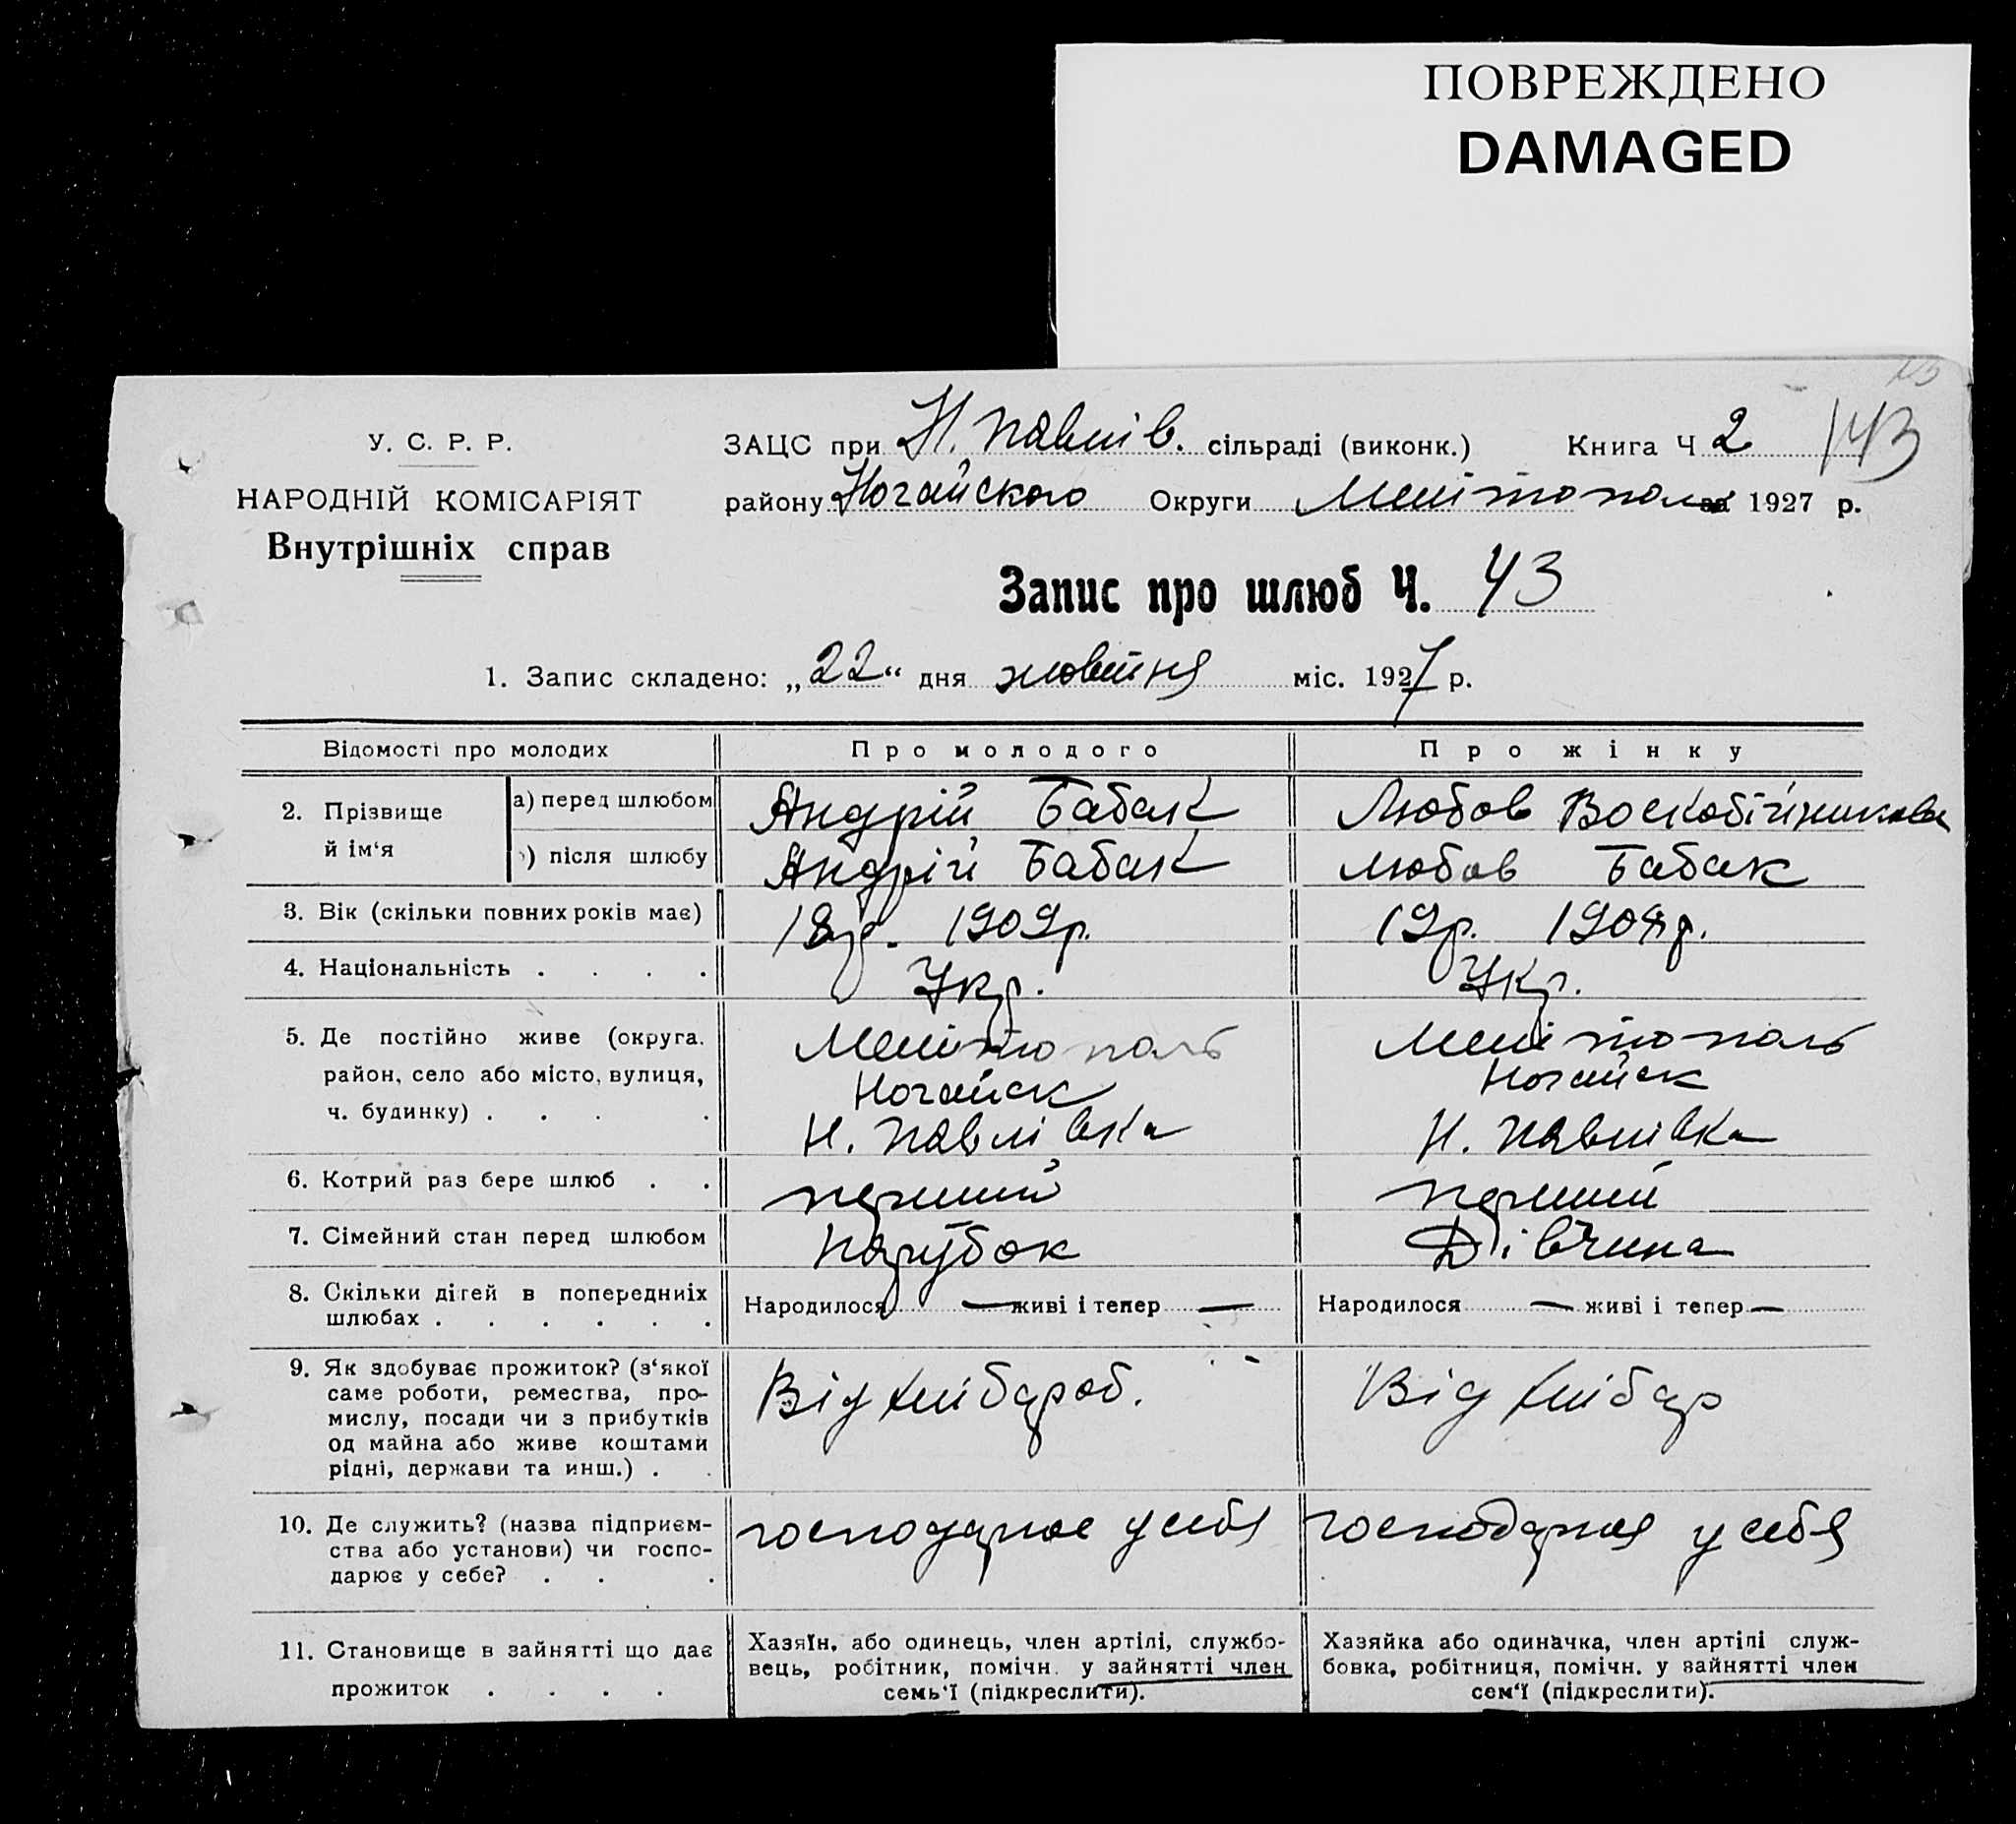 ПОВРЕЖДЕНО
DAMAGED
У. С. Р. Р.
НАРОДНІЙ КОМІСАРІЯТ
Внутрішніх справ
ЗАЦС при Н. Павлів. сільраді (виконк.) Книга Ч 2 143
району Ногайского Округи Мелітополь за 1927 р.
Запис про шлюб Ч. 43
1. Запис складено: „22“ дня жовтня міс. 1927 р.
Відомості про молодих Про молодого Про жінку
2. Прізвище й ім‘я
а) перед шлюбом Андрій Бабак Любов Воскобійникова
) після шлюбу Андрій Бабак Любов Бабак
3. Вік (скільки повних років має) 18р. 1909р. 19р. 1908р.
4. Національність . . . . Укр. Укр.
5. Де постійно живе (округа. Мелітополь Мелітополь
район, село або місто, вулиця, Ногайск Ногайск
ч. будинку) . . . . Н. Павлівка Н. Павлівка
6. Котрий раз бере шлюб . . перший перший
7. Сімейний стан перед шлюбом Парубок Дівчина
8. Скільки дітей в попередниіх
шлюбах . . . . . . Народилося — живі і тепер — Народилося — живі і тепер —
9. Як здобуває прожиток? (з‘якої
саме роботи, ремества, про-
мислу, посади чи з прибутків
од майна або живе коштами
рідні, держави та инш.) . .
Від хлібароб. Від хлібар
10. Де служить? (назва підприєм-
ства або установи) чи госпо-
дарює у себе? . . .
господарює у себя господарюя у себя
11. Становище в зайнятті що дає
прожиток . . . .
Хазяїн, або одинець, член артілі, службо-
вець, робітник, помічн. у зайнятті член
семь‘ї (підкреслити).
Хазяйка або одиначка, член артілі служ-
бовка, робітниця, помічн. у зайнятті член
сем‘ї (підкреслити).